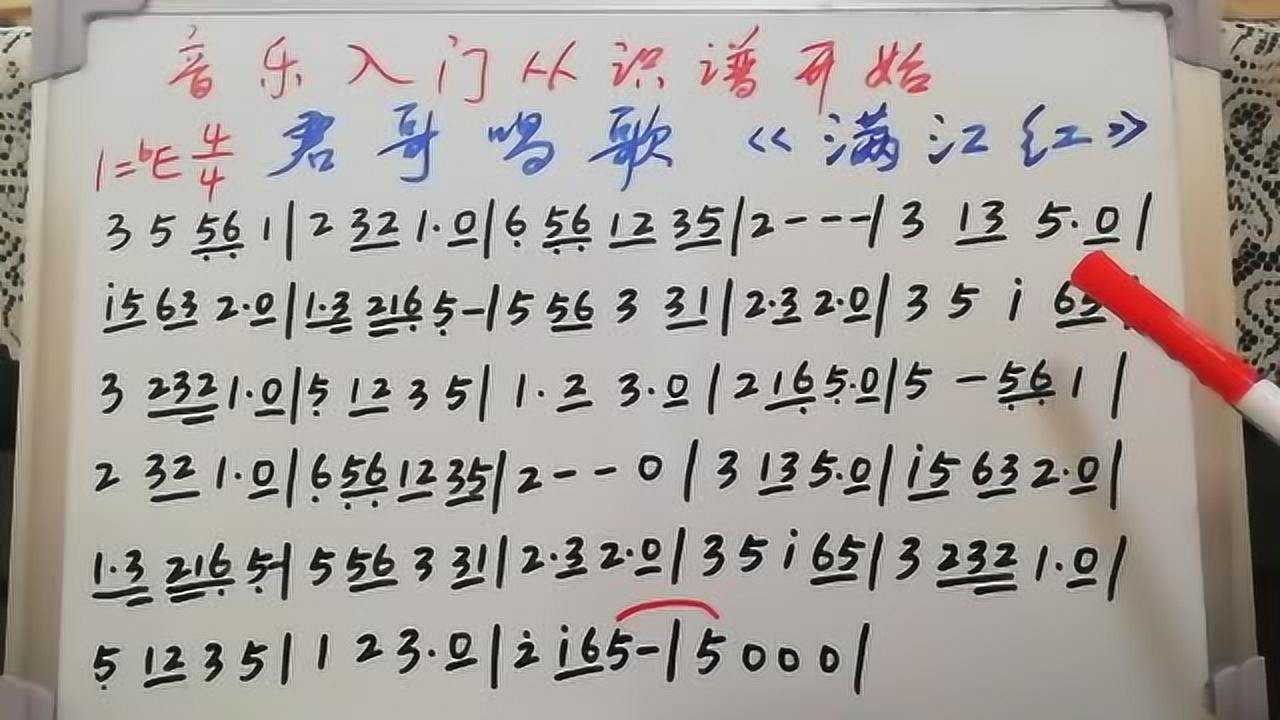 音乐入门从识谱开始
1=bE 4/4 君哥唱歌《满江红》
3 5 56 1|2 32 1·0|6 56 12 35|2---|3 13 5·0|
i5 63 2·0|1·3 216 5-|5 56 3 31|2·3 2·0|3 5 i 65|
3 232 1·0|5 12 3 5|1·2 3·0|2 16 5·0|5 - 56 1|
2 32 1·0|6 56 12 35|2--0|3 13 5·0|i5 63 2·0|
1·3 216 5-|5 56 3 31|2·3 2·0|3 5 i 65|3 232 1·0|
5 12 3 5|1 2 3·0|2 i6 5-|5 0 0 0|